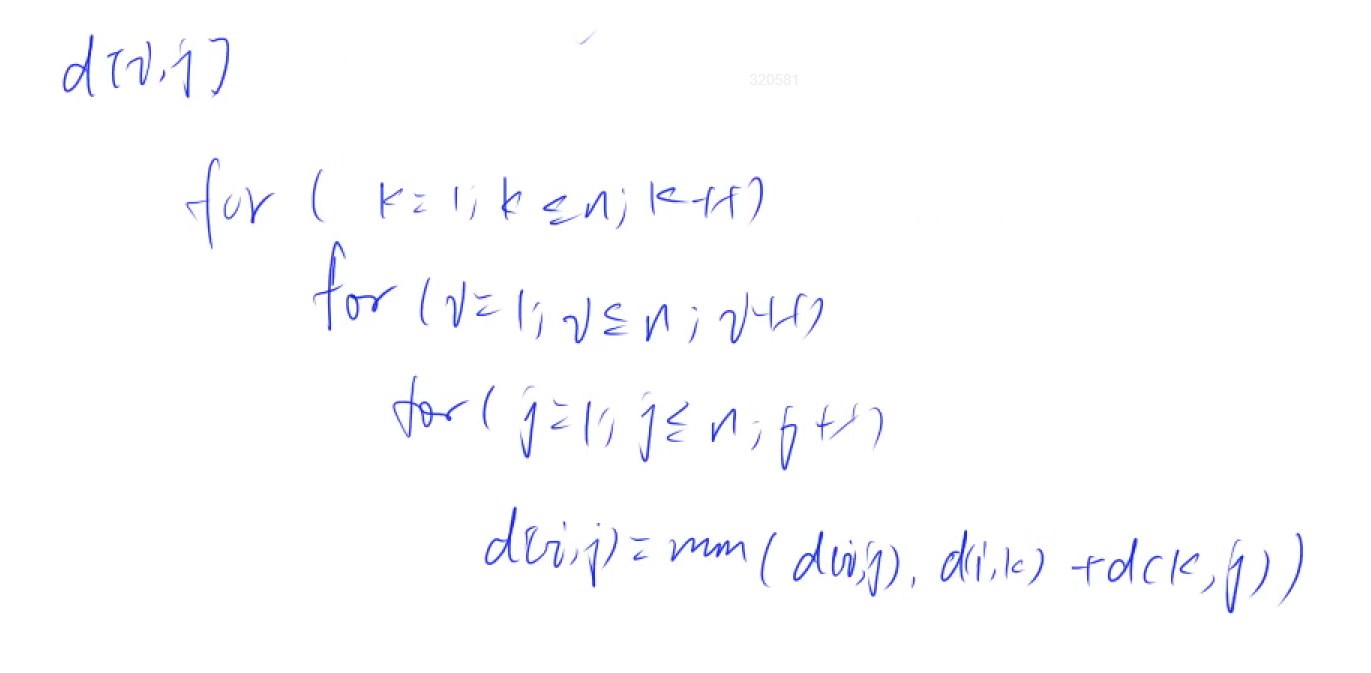 d[i,j]
320581
for ( k=1; k≤n; k++)
for (i=1; i≤n; i++)
for( j=1; j≤n; j++)
d(i,j)=min( d(i,j), d(i,k) +d(k,j))